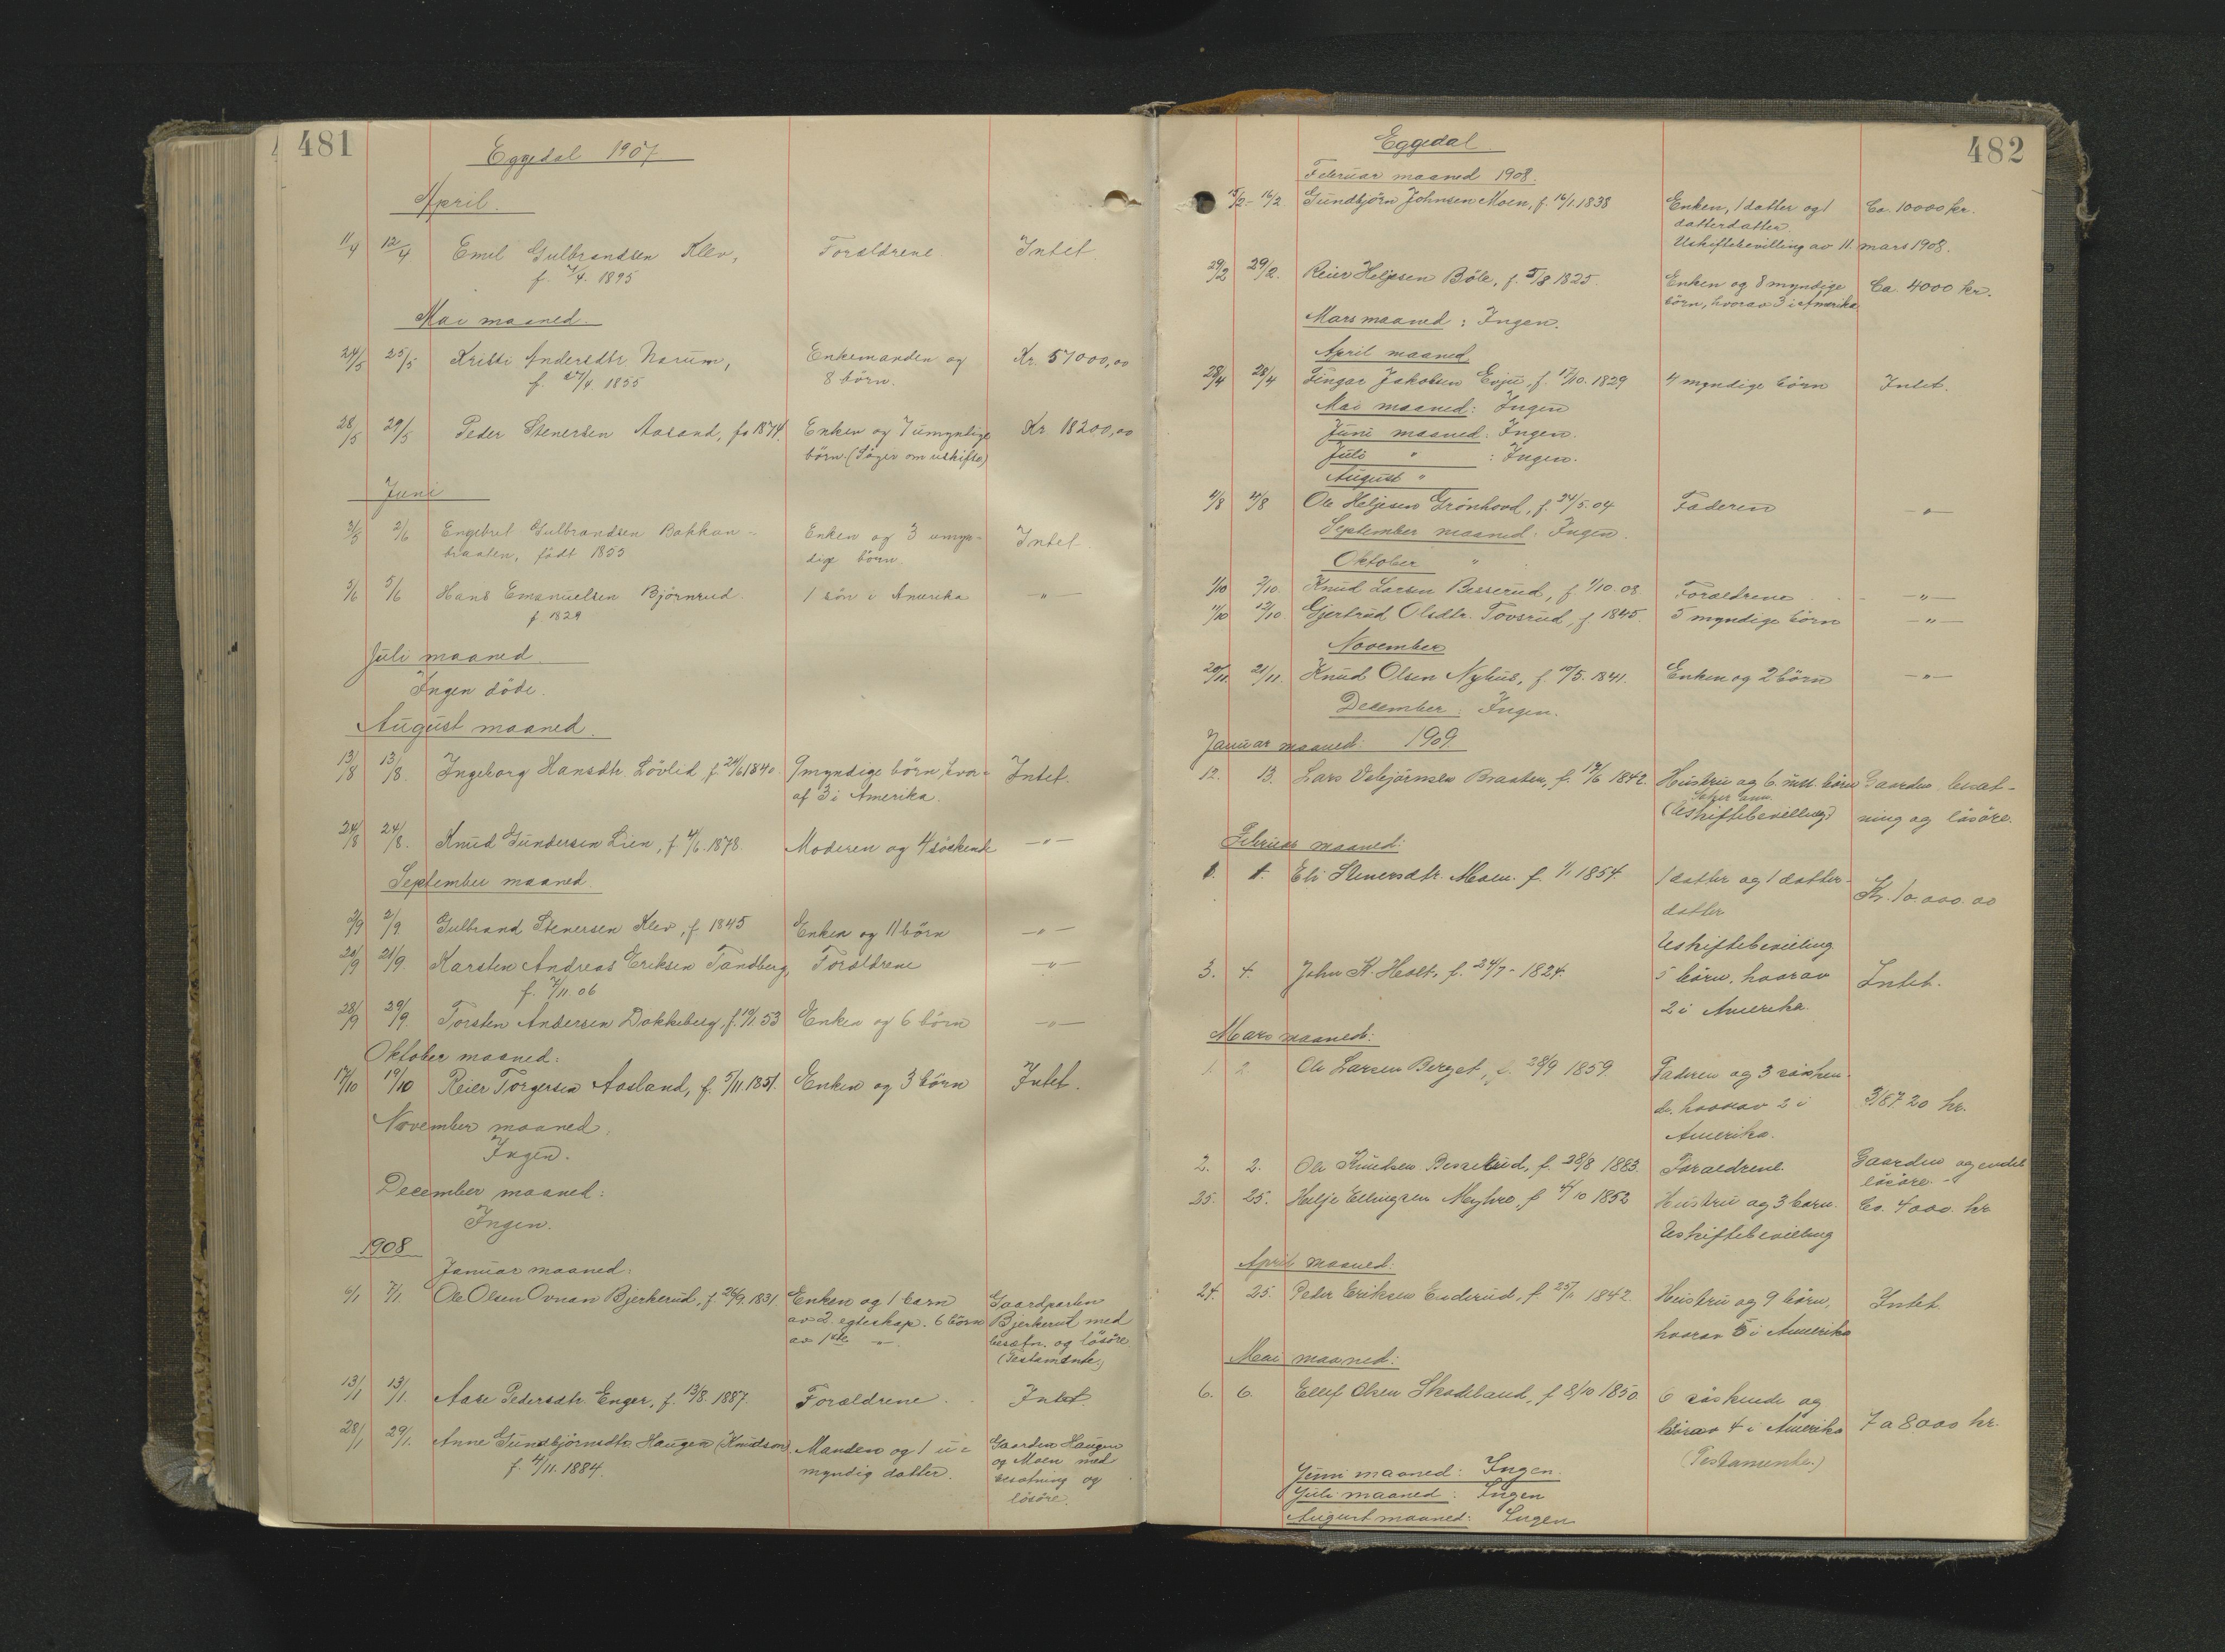 481
Eggedal 1907
April.
11/4 12/4 Emil Gulbrandsen Klev, Foraldrene. Intet.
f. 7/4. 1895
Mai maaned.
24/5 25/5 Kristi Andersdtr Narum, Enkemanden og Kr. 57000,00
f. 27/4 1855 8 börn.
28/5 29/5 Peder Stenersen Aasand, fø 1874. Enken og 7 umyntige Kr 18200,00
börn. (Söger om uskifte)
Juni
3/5 2/6 Engebret Gulbrandsen Bakkan- Enken og 3 umyn- Intet.
braaten, födt 1853 dige börn.
3/6 5/6 Hans Emanuelsen Björnrud. 1 sön i Amerika —"—
f 1829
Juli maaned.
Ingen döde.
August maaned.
13/8 13/8. Ingeborg Hansdtr. Lövlid, f. 24/6 1840. 9 myndige börn, hvor- Intet.
af 3 i Amerika.
24/8 24/8. Knud Gundersen Lien, f 4/6. 1878. Moderen og 4 söskende —"—
September maaned.
2/9 2/9 Gulbrand Stenersen Klev, f. 1845 Enken og 11 börn —"—
20/9 21/9. Karsten Andreas Eriksen Tandberg, Foraldrene —"—
f. 7/11. 06
28/9 29/9. Torsten Andersen Dokkeberg, f. 19/1 53 Enken og 6 börn —"—
Oktober maaned:
17/10 19/10 Reier Torgersen Aasland, f. 5/11 1851. Enken og 3 börn Intet.
November maaned.
Ingen.
December maaned:
Ingen.
1908
Januar maaned:
6/1 7/1. Ole Olsen Ovnan Bjerkerud, f. 26/9. 1831. Enken og 1 barn Gaardparten
av 2. egteskap. 6 börn Bjerkerud med
av 1ste —"— besætn. og lösöre
(Testamente)
13/1 13/1. Aase Pedersdtr. Enger, f. 13/8. 1887. Forældrene. Intet.
28/1 29/1. Anne Gundbjörnsdtr Haugen (Knudson). Manden og 1 u- Gaarden Haugen
f. 4/11. 1884. myndig datter. og Moen med
besætning og
lösöre.
482
Eggedal.
Februar maaned 1908.
15/2 - 16/2 Gundbjörn Johnsen Moen, f. 16/1. 1838 Enken, 1 datter og 1 Ca. 10000 kr.
datterdatter.
Uskiftebevilling av 11. mars 1908.
29/2 29/2. Reier Heljesen Böle, f. 5/8 1825. Enken og 8 myndige Ca. 4000 kr.
börn, hvorav 3 i Amerika
Mars maaned: Ingen.
April maaned.
28/4 28/4 Fingar Jakobsen Evju, f. 17/10. 1829 4 myndige börn Intet.
Mai maaned: Ingen
Juni maaned: Ingen.
Juli " : Ingen.
August "
4/8 4/8 Ole Heljesen Grönhovd, f. 24/5. 04 Faderen —"—
September maaned: Ingen.
Oktober "
1/10 2/10. Knud Larsen Besserud, f. 1/10. 08. Foraeldrene —"—
11/10 12/10 Gjertrud Olsdtr. Tovsrud, f 1845. 5 myndige börn —"—
November
20/11. 21/11. Knud Olsen Nyhus, f. 10/5. 1841. Enken og 2 börn —"—
December: Ingen.
Januar maaned: 1909.
12. 13. Lars Vebjörnsen Braaten, f. 17/6 1842. Hustru og 6 mnd. börn Gaarden, besæt-
Söker om
(Uskiftebevilling) ning og lösöre.
Februar maaned:
1. 1. Eli Stenersdtr. Moen. f. 1/1 1854. 1 datter og 1 datter- Kr. 10.000.00
datter
Uskiftebevilling
3. 4. John K. Holt, f. 24/7 - 1824. 5 börn, hvorav Intet.
2 i Amerika.
Mars maaned:
1. 2. Ole Larsen Berget, f. 28/9 1859. Faderen og 3 sösken-
de. hvorav 2 i 3187.20 kr.
Amerika.
2. 2. Ole Knudsen Besserud, f. 28/8 1883. Foraeldrene. Gaarden og endel
lösöre.
25. 25. Helje Ellingsen Myhre, f 4/10 1852 Hustru og 3 barn. Ca. 4000. kr
Uskiftebevilling
April maaned:
24. 25. Peder Eriksen Enderud, f. 25/1 1842. Hustru og 9 börn, Intet.
hvorav 5 i Amerika
Mai maaned:
6. 6. Ellef Olsen Skadeland, f 8/10 1850. 6 söskende og
hvorav 4 i Amerika 7 a 8000 kr.
(Testamente.)
Juni maaned: Ingen.
Juli maaned: Ingen
August maaned: Ingen